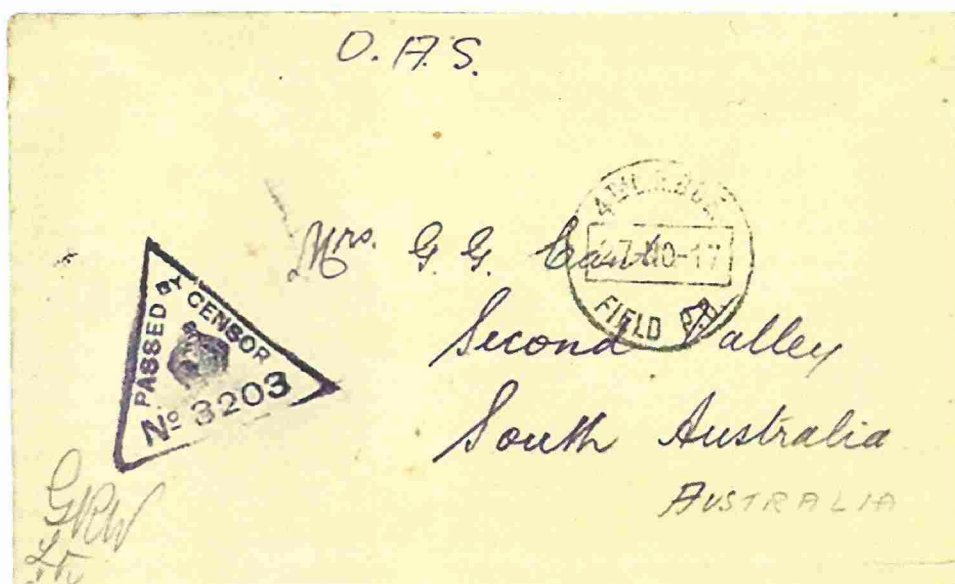 O.A.S.
PASSED BY CENSOR
No 3203
27 10-17
FIELD
Mrs. G. G.
Second Valley
South Australia
AUSTRALIA
GRW
Lt